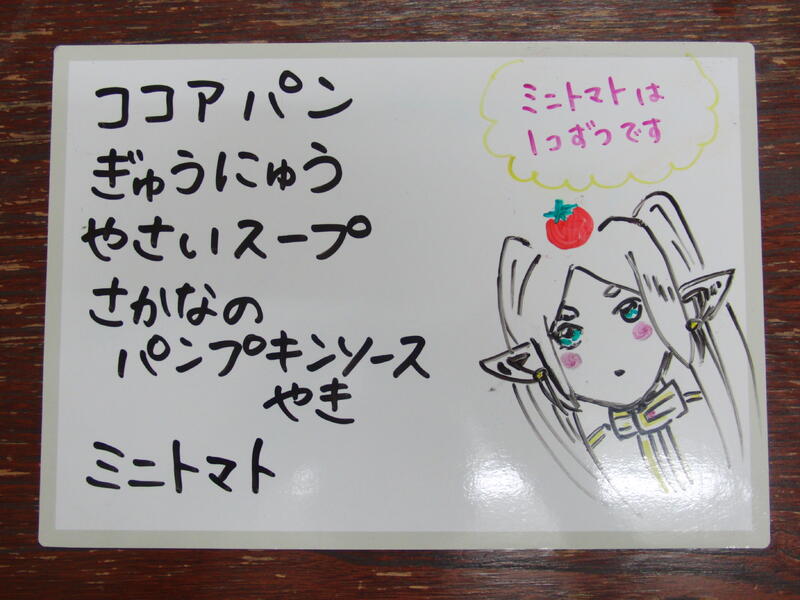 ココアパン
ぎゅうにゅう
やさいスープ
さかなの
パンプキンソース
やき
ミニトマト
ミニトマトは
1コずつです